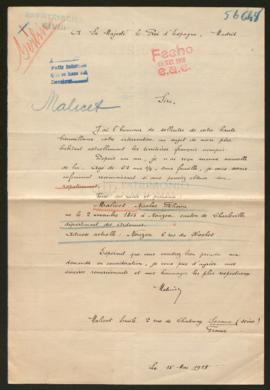 56648
A Sa Majesté le Roi d'Espagne, Madrid
Fecho
Malicet
Sire,
J'ai l'honneur de solliciter de votre haute
bienveillance votre intervention au sujet de mon père
habitant actuellement les territoires français occupés.
Depuis un an, je n'ai reçu aucune nouvelle
de lui. Agé de 62 ans ½, sans famille, je vous serais
infiniment reconnaissant si vous pouviez obtenir son
rapatriement.
Malicet Nicolas
né le 2 novembre 1855 à Nouzon canton de Charleville
département des Ardennes
Adresse actuelle: Nouzon 6 rue du
Espérant que vous voudrez bien prendre ma
demande en considération, je vous prie d'agréer mes
sincères remerciements et mes hommages les plus respectueux
Malicet
Malicet 2 rue de
France
Le 15 Mai 1918